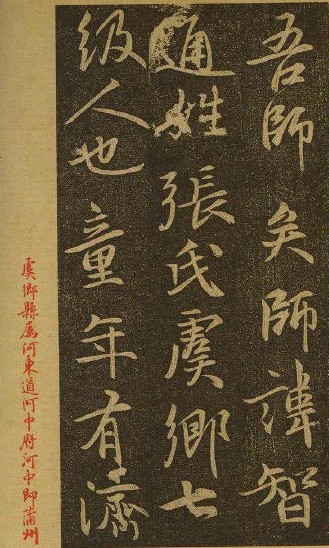 吾師矣師諱智
通姓張氏虞鄉七
级人也童年有濟
虞鄉縣屬河東道河中府河中即蒲州